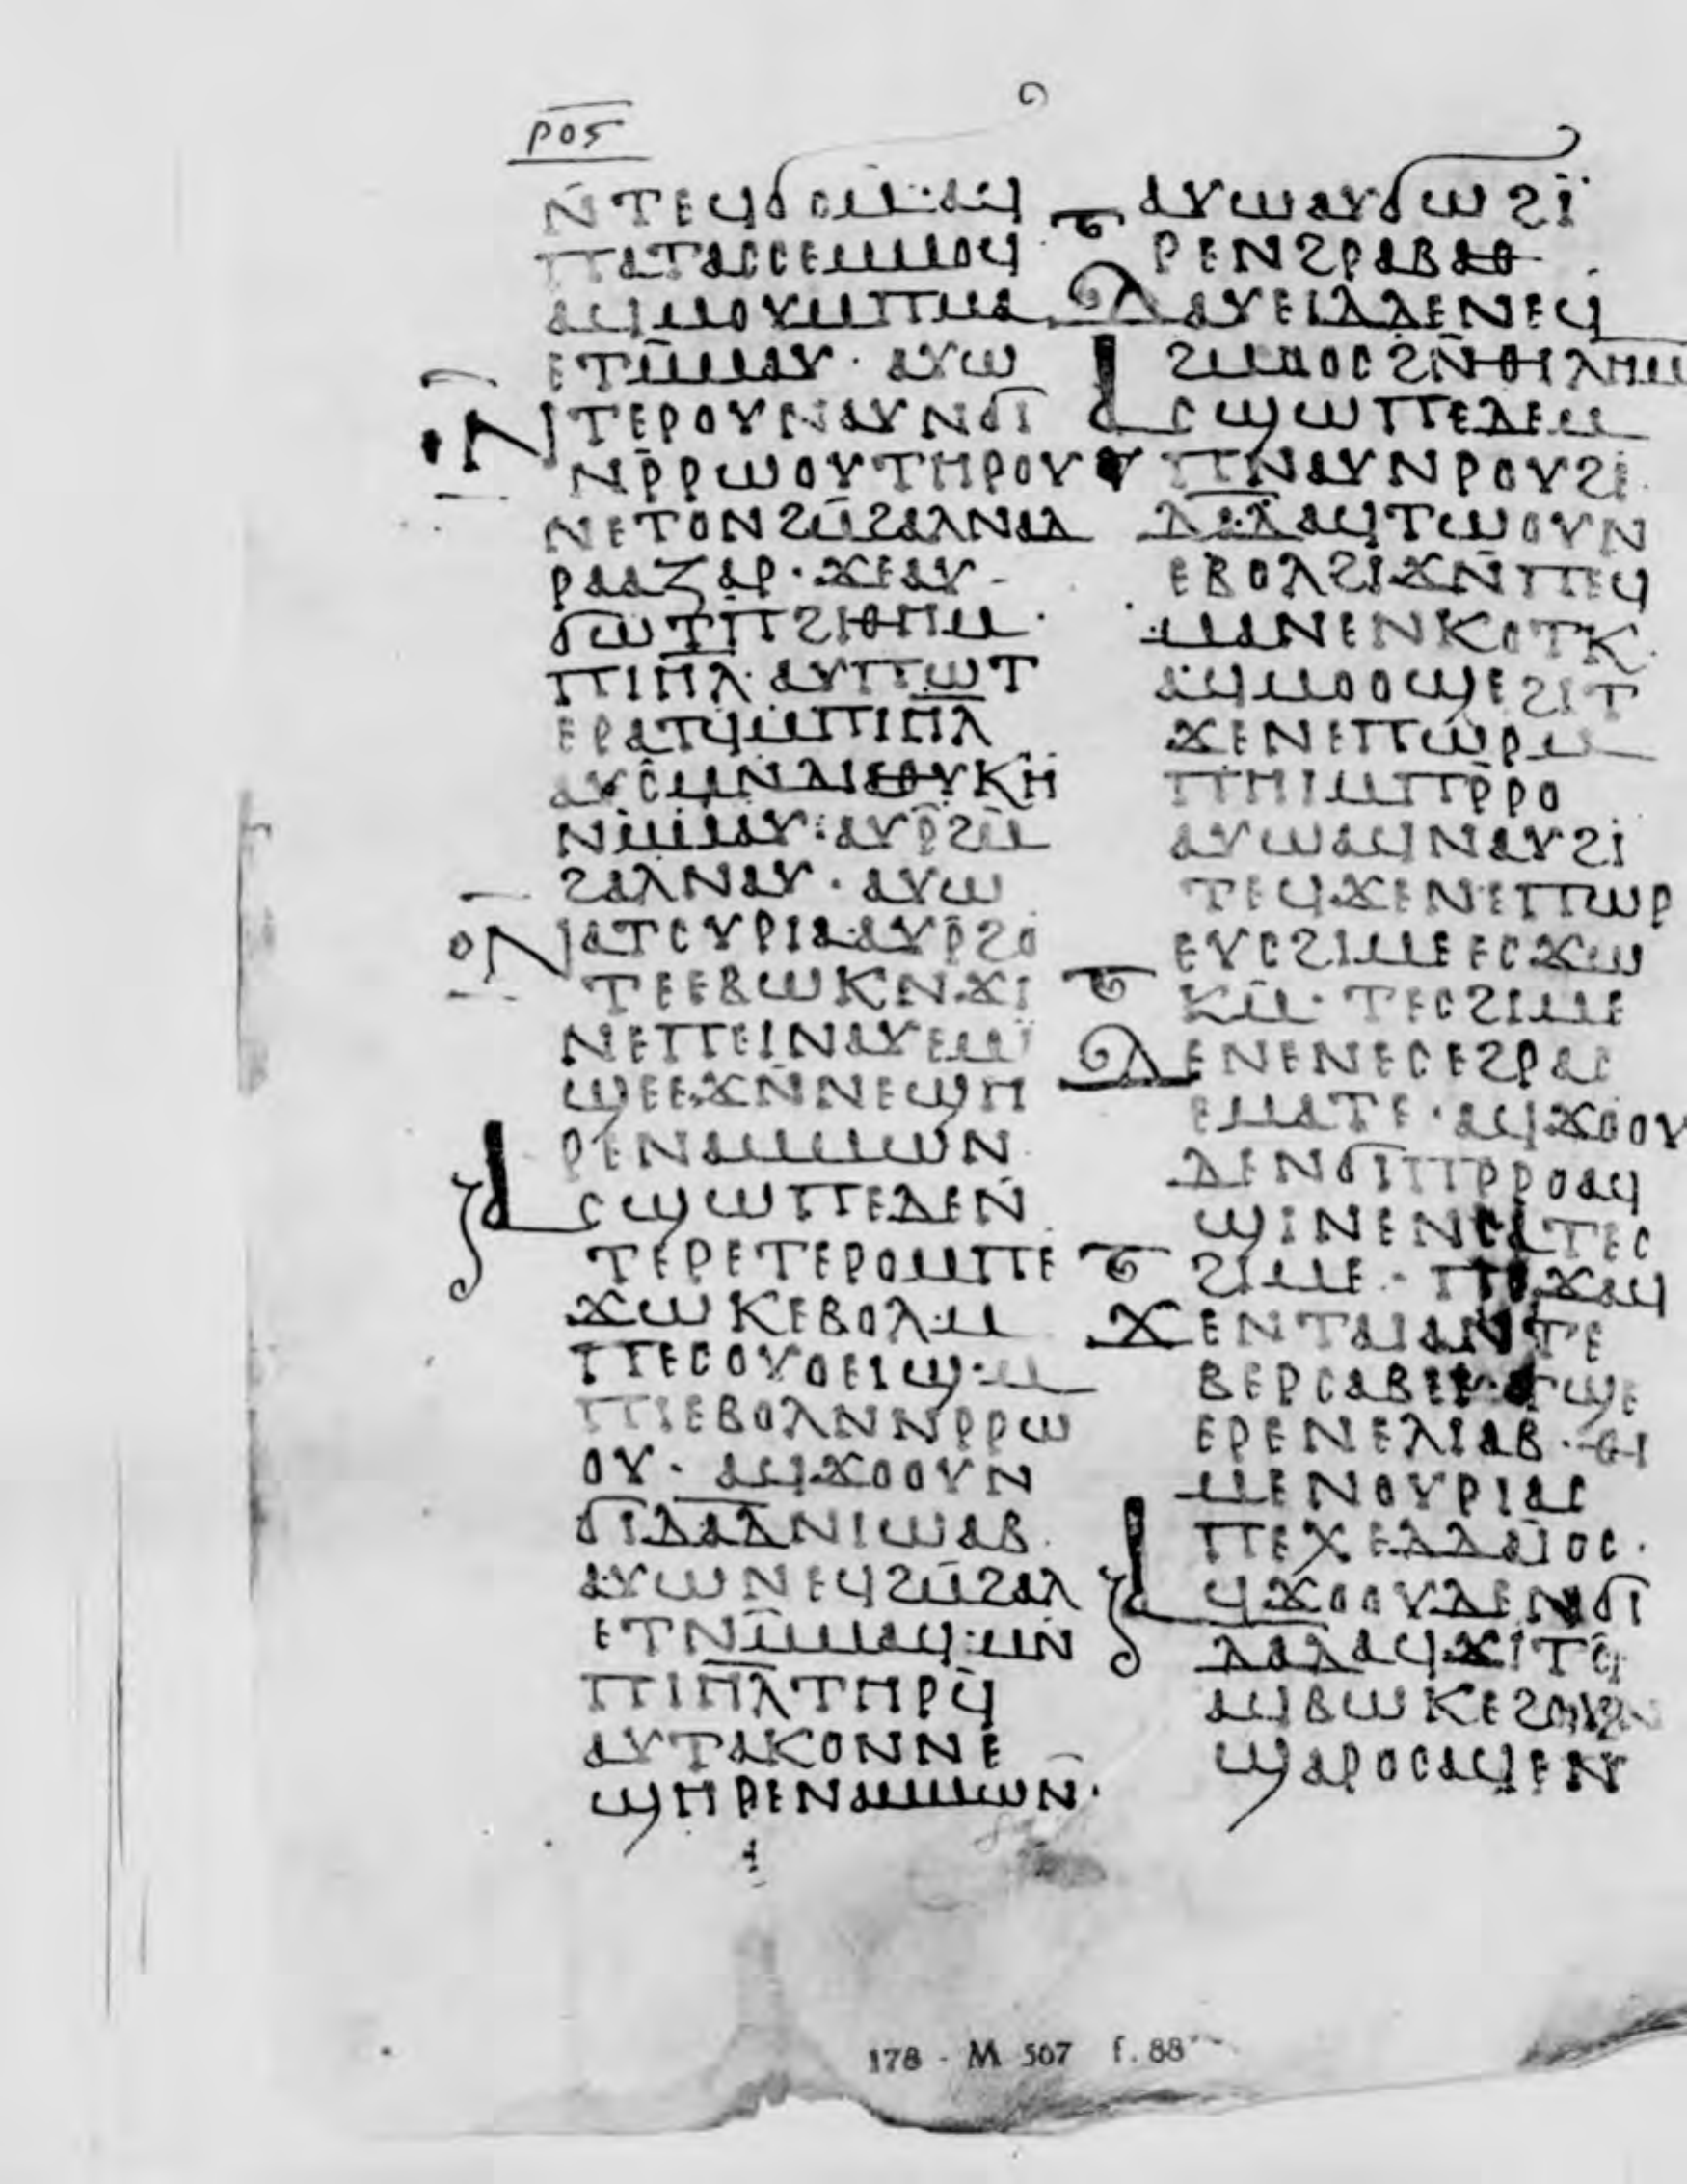 ⲣⲟⲋ
ⲛ̄ⲧⲉϥϭⲟⲙ·ⲁϥ
ⲡⲁⲧⲁⲥⲥⲉⲙⲙⲟϥ
ⲁϥⲙⲟⲩⲙⲡⲙⲁ
ⲉⲧⲙ̄ⲙⲁⲩ· ⲁⲩⲱ
ⲛⲧⲉⲣⲟⲩⲛⲁⲩⲛϭⲓ
ⲛⲣ̄ⲣⲱⲟⲩⲧⲏⲣⲟⲩ
ⲛⲉⲧⲟⲛϩⲙ̄ϩⲁⲗⲛⲁⲇ
ⲣⲁⲁⲍⲁⲣ·ϫⲉⲁⲩ-
ϭⲱⲧⲡ̄ϩⲓⲑⲏⲙ·
ⲡⲓⲏ̄ⲗ·ⲁⲩⲡⲱⲧ
ⲉⲣⲁⲧϥⲙⲡⲓⲏ̄ⲗ
ⲁⲩⲥⲙⲛⲇⲓⲑⲩⲕⲏ
ⲛⲙ̄ⲙⲁⲩ·ⲁⲩⲣ̄ϩⲙ̄
ϩⲁⲗⲛⲁⲩ· ⲁⲩⲱ
ⲛⲁⲧⲥⲩⲣⲓⲁ·ⲁⲩⲣ̄ϩⲟ
ⲧⲉⲉⲃⲱⲕⲛϫⲓ
ⲛⲉⲡⲉⲓⲛⲁⲩⲉⲙⲓ̈
ϣⲉⲉϫⲛ̄ⲛⲉϣⲏ
ⲣⲉⲛⲁⲙⲙⲱⲛ
ⲁⲥϣⲱⲡⲉⲇⲉⲛ̄
ⲧⲉⲣⲉⲧⲉⲣⲟⲙⲡⲉ
ϫⲱⲕⲉⲃⲟⲗ·ⲙ
ⲡⲉⲥⲟⲩⲟⲉⲓϣ·ⲙ
ⲡⲓⲉⲃⲟⲗⲛⲛⲣⲣⲱ
ⲟⲩ· ⲁϥϫⲟⲟⲩⲛ
ϭⲓⲇⲁ̄ⲇⲛⲓⲱⲁⲃ·
ⲁⲩⲱⲛⲉϥϩⲙ̄ϩⲁⲗ
ⲉⲧⲛⲙ̄ⲙⲁϥ·ⲙⲛ
ⲡⲓⲏ̄ⲗⲧⲏⲣϥ̄
ⲁⲩⲧⲁⲕⲟⲛⲛⲉ
ϣⲏⲣⲉⲛⲁⲙⲙⲱⲛ·
ⲁⲩⲱⲁⲩϭⲱϩⲓ̈
ⲣⲉⲛϩⲣⲁⲃⲁⲑ·
ⲇⲁⲩⲉⲓⲇⲇⲉⲛⲉϥ
ϩⲙⲟⲟⲥϩⲛ̄ⲑⲓⲗⲏⲙ
ⲁⲥϣⲱⲡⲉⲇⲉⲙ
ⲡⲛⲁⲩⲛⲣⲟⲩϩⲓ·
ⲇⲁ̄ⲇⲁϥⲧⲱⲟⲩⲛ
ⲉⲃⲟⲗϩⲓϫⲛ̄ⲡⲉϥ
ⲙⲁⲛⲉⲛⲕⲟⲧⲕ·
ⲁϥⲙⲟⲟϣⲉϩⲓⲧ
ϫⲉⲛⲉⲡⲱⲣⲙ
ⲡⲏⲓⲙⲡⲣ̄ⲣⲟ
ⲁⲩⲱⲁϥⲛⲁⲩϩⲓ
ⲧⲉϥϫⲉⲛⲉⲡⲱⲣ
ⲉⲩⲥϩⲓⲙⲉⲉⲥϫⲱ
ⲕⲙ̄· ⲧⲉⲥϩⲓⲙⲉ
ⲇⲉⲛⲉⲛⲉⲥⲉϩⲣⲁⲥ
ⲉⲙⲁⲧⲉ·ⲁϥϫⲟⲟⲩ
ⲇⲉⲛϭⲓⲡⲣ̄ⲣⲟⲁϥ
ϣⲓⲛⲉⲛⲥⲁⲧⲉⲥ
ϩⲓⲙⲉ· ⲡⲉϫⲁϥ
ϫⲉⲛⲧⲁⲓⲁⲛⲧⲉ
ⲃⲉⲣⲥⲁⲃⲉⲉ·ⲧϣⲉ
ⲉⲣⲉⲛⲉⲗⲓⲁⲃ·ⲑⲓ
ⲙⲉⲛⲟⲩⲣⲓⲁⲥ
ⲡⲉⲭⲉⲇⲇⲁⲓⲟⲥ·
ⲁϥϫⲟⲟⲩⲇⲉⲛϭⲓ
ⲇⲁ̄ⲇⲁϥϫⲓⲧⲥ̄
ⲁϥⲃⲱⲕⲉϩⲟⲩⲛ
ϣⲁⲣⲟⲥⲁϥⲉⲛ
178 - M 567 f. 88